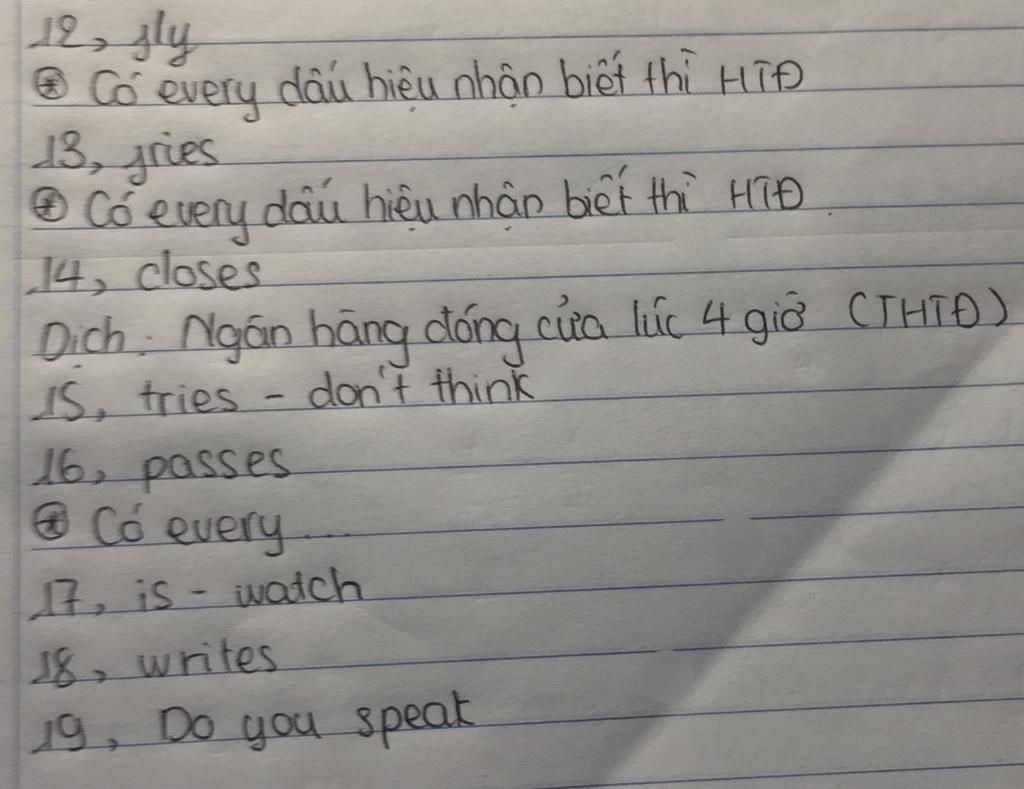 12, fly
⊛ Có every dấu hiệu nhận biết thì HTĐ
13, fries
⊛ Có every dấu hiệu nhận biết thì HTĐ
14, closes
Dịch: Ngân hàng đóng cửa lúc 4 giờ (THTĐ)
15, tries - don't think
16, passes
⊛ Có every ...
17, is - watch
18, writes
19, Do you speak